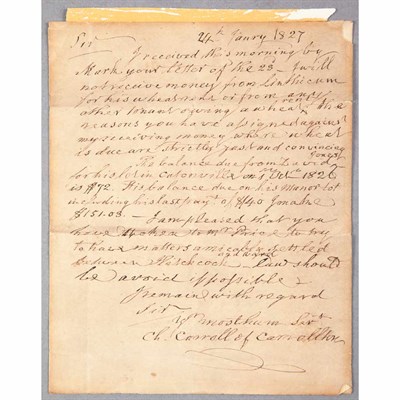 24th Janry 1827
Sir
I received this morning by
Mark your letter of the 23d I will
not receive money from Linthicum
for his wheat rent or from any
other tenant owing a wheat rent, the
reasons you have assigned against
my receiving money where wheat
is due are strictly just and convincing
The balance due from David Jones
for his lot in Catonville on 1st Octr 1826
is $72. His balance due on his Manor lot
including his last payt of $40 I make
$151.03 — I am pleased that you
have Price to try
to have matters amicably settled
between Hitchcock and Wood — Law should
be avoid if possible
I remain with regard
Sir
Yr most hum Servt
Ch. Carroll of Carrollton